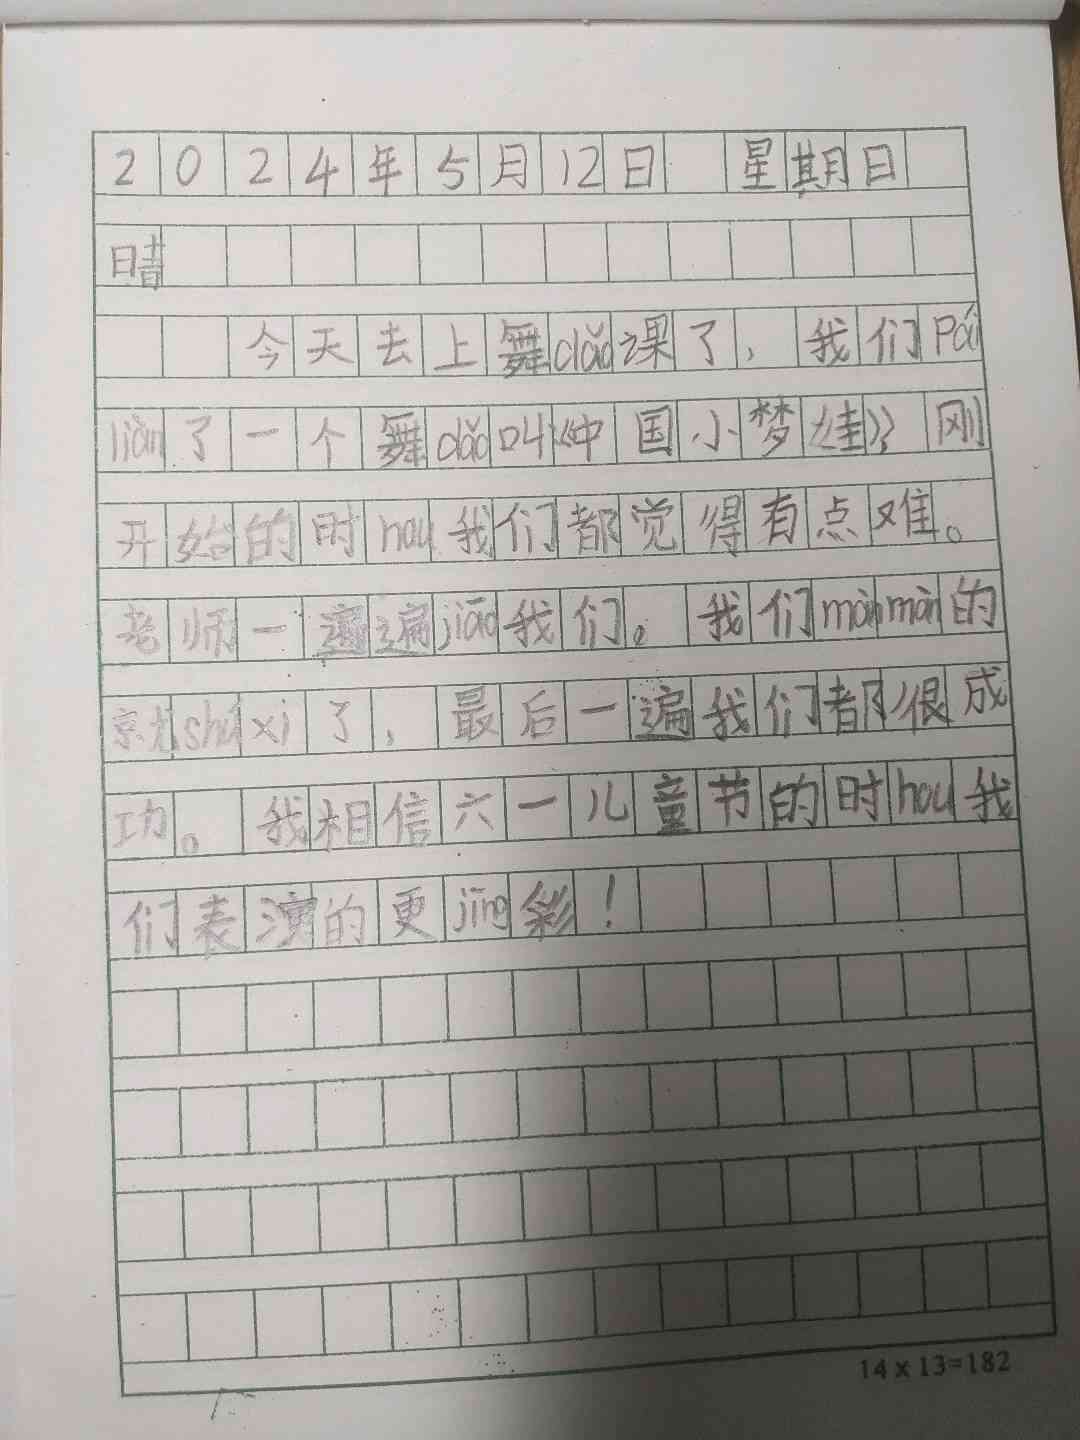 2024年5月12日 星期日
晴
今天去上舞dǎo课了，我们Pái
liàn了一个舞dǎo叫《中国小梦娃》刚
开始的时hou我们都觉得有点难。
老师一遍遍jiāo我们。我们mànmàn的
就shúxi了，最后一遍我们都很成
功。我相信六一儿童节的时hou我
们表演的更jīng彩！
14×13=182